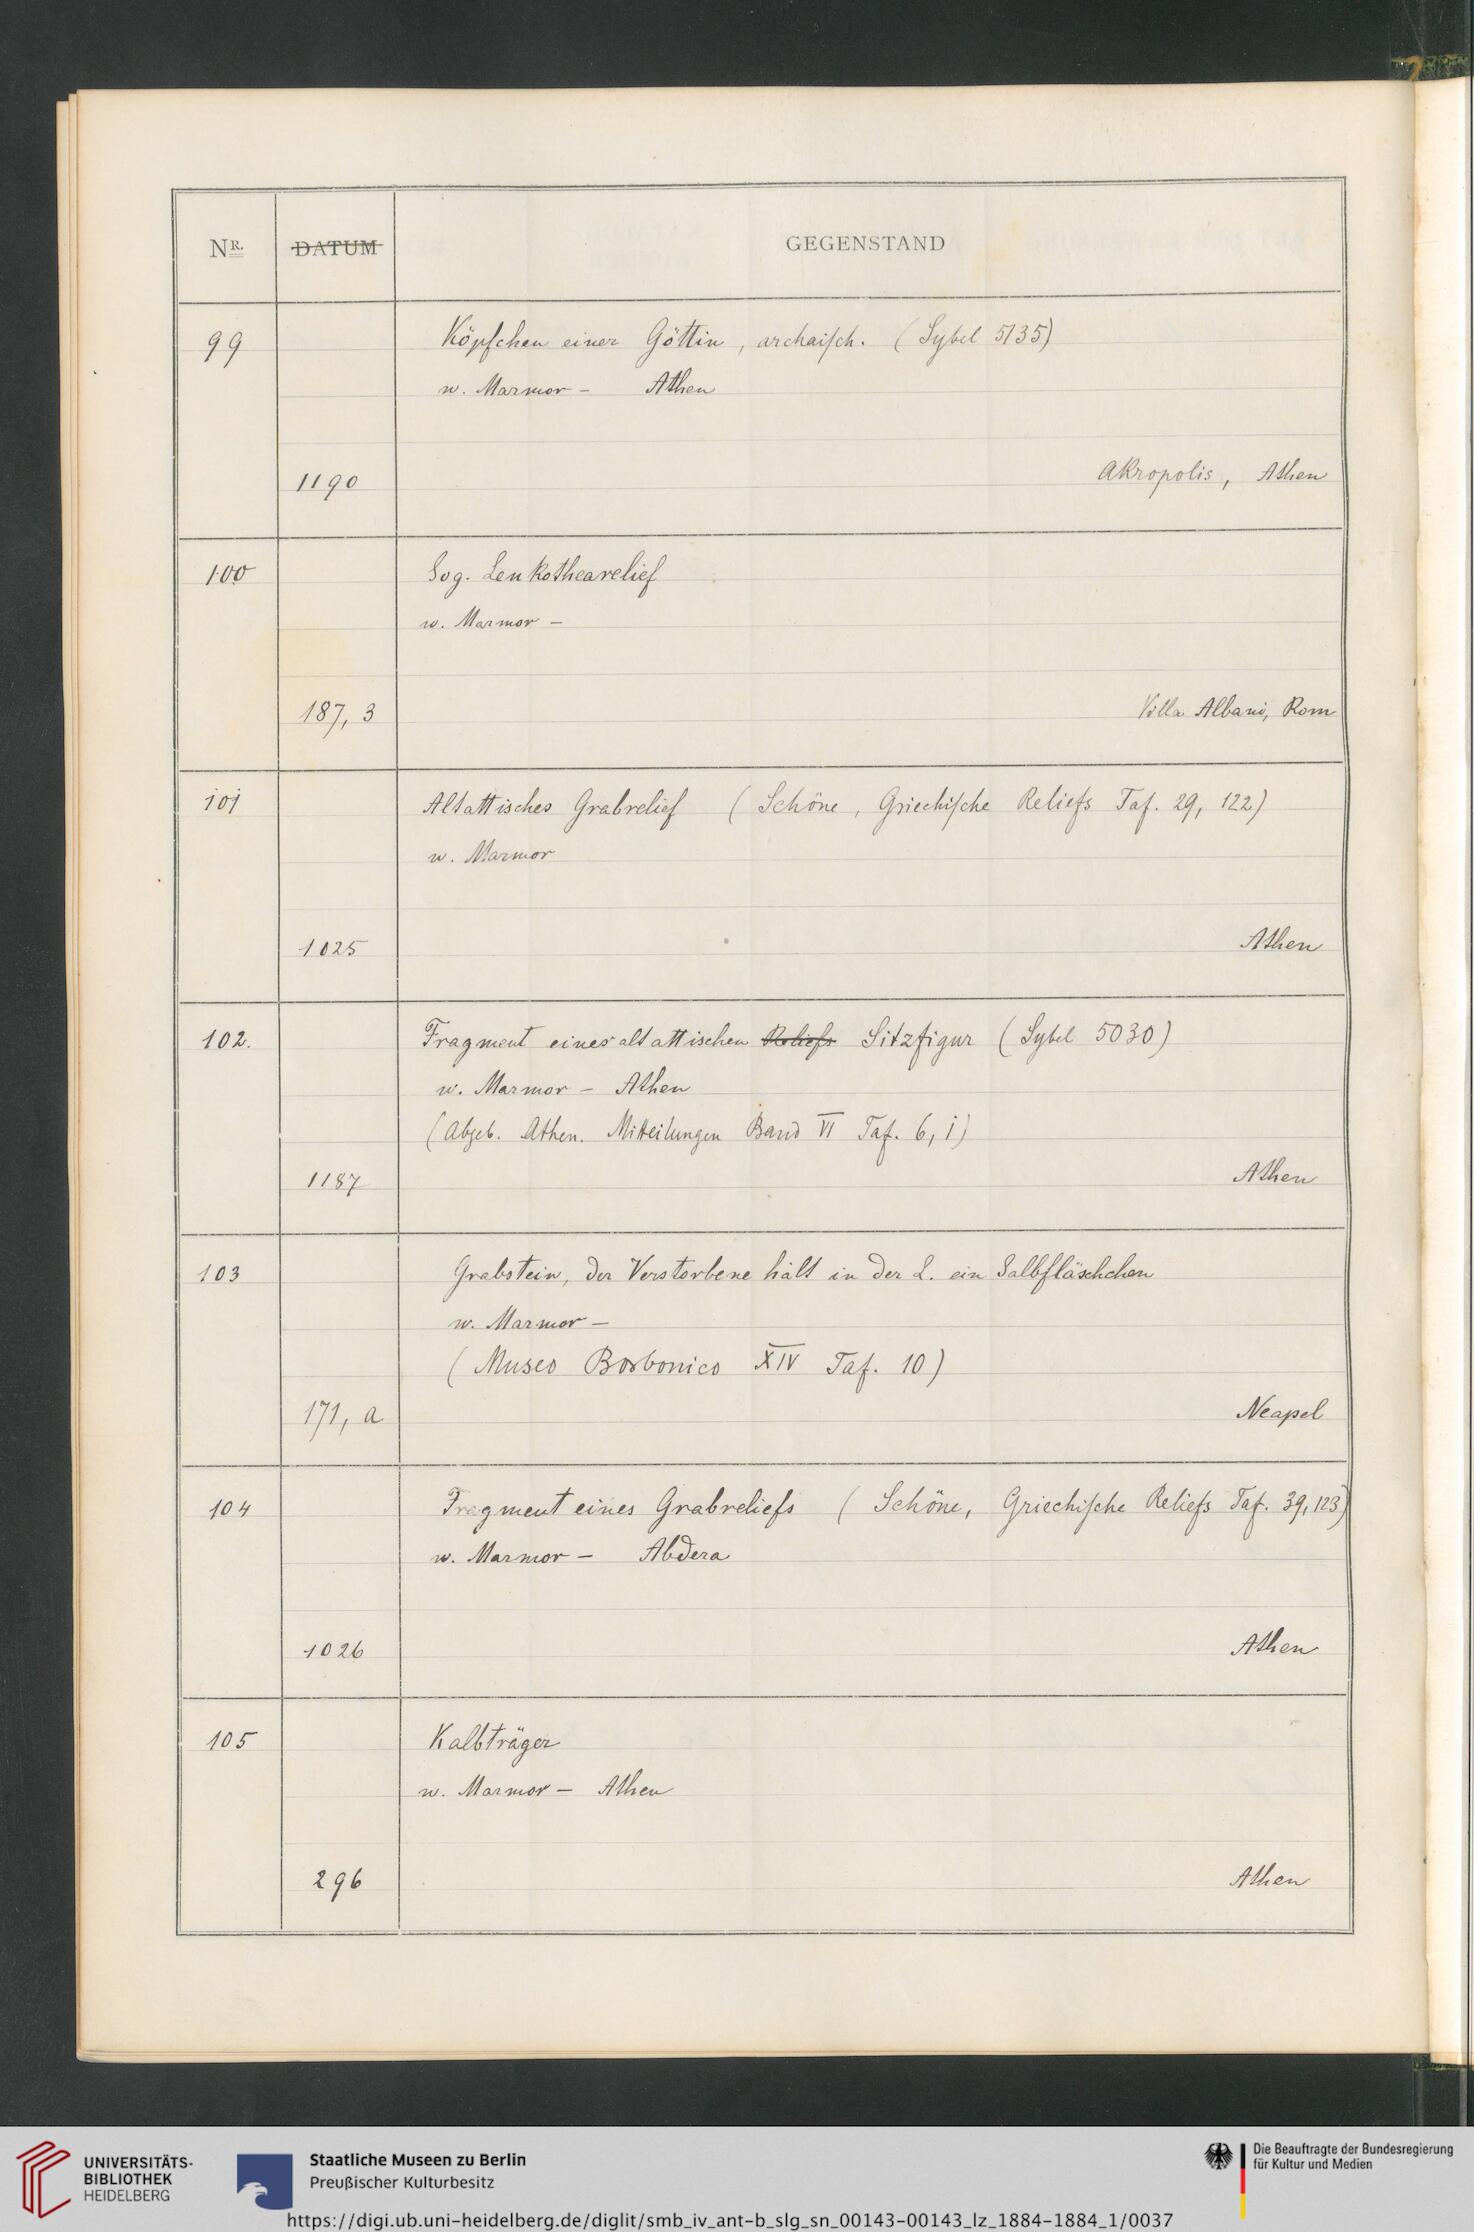 NR. DATUM GEGENSTAND
99 Köpfchen einer Göttin, archaisch. (Sybel 5135)
w. Marmor – Athen
1190 Akropolis, Athen
100 Sog. Leukothearelief
w. Marmor –
187, 3 Villa Albani, Rom
101 Altattisches Grabrelief (Schöne, Griechische Reliefs Taf. 29, 122)
w. Marmor
1025 Athen
102. Fragment einer altattischen Reliefs Sitzfigur (Sybel 5030)
w. Marmor – Athen
(Abgeb. Athen. Mitteilungen Band VI Taf. 6, 1)
1187 Athen
103 Grabstein, der Verstorbene hält in der L. ein Salbfläschchen
w. Marmor –
(Museo Borbonico XIV Taf. 10)
171, a Neapel
104 Fragment eines Grabreliefs (Schöne, Griechische Reliefs Taf. 39, 123)
w. Marmor – Abdera
1026 Athen
105 Kalbträger
w. Marmor – Athen
296 Athen
UNIVERSITÄTS-
BIBLIOTHEK
HEIDELBERG
Staatliche Museen zu Berlin
Preußischer Kulturbesitz
Die Beauftragte der Bundesregierung
für Kultur und Medien
https://digi.ub.uni-heidelberg.de/diglit/smb_iv_ant-b_slg_sn_00143-00143_lz_1884-1884_1/0037